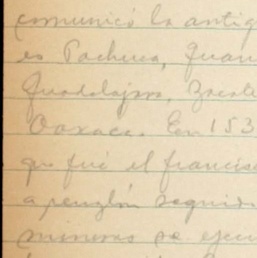 comunicó la antig
es Pachuca, Guan
Guadalajara, Zacate
Oaxaca. En 153
que fué el francisc
a renglón seguido
mineros se ejecu